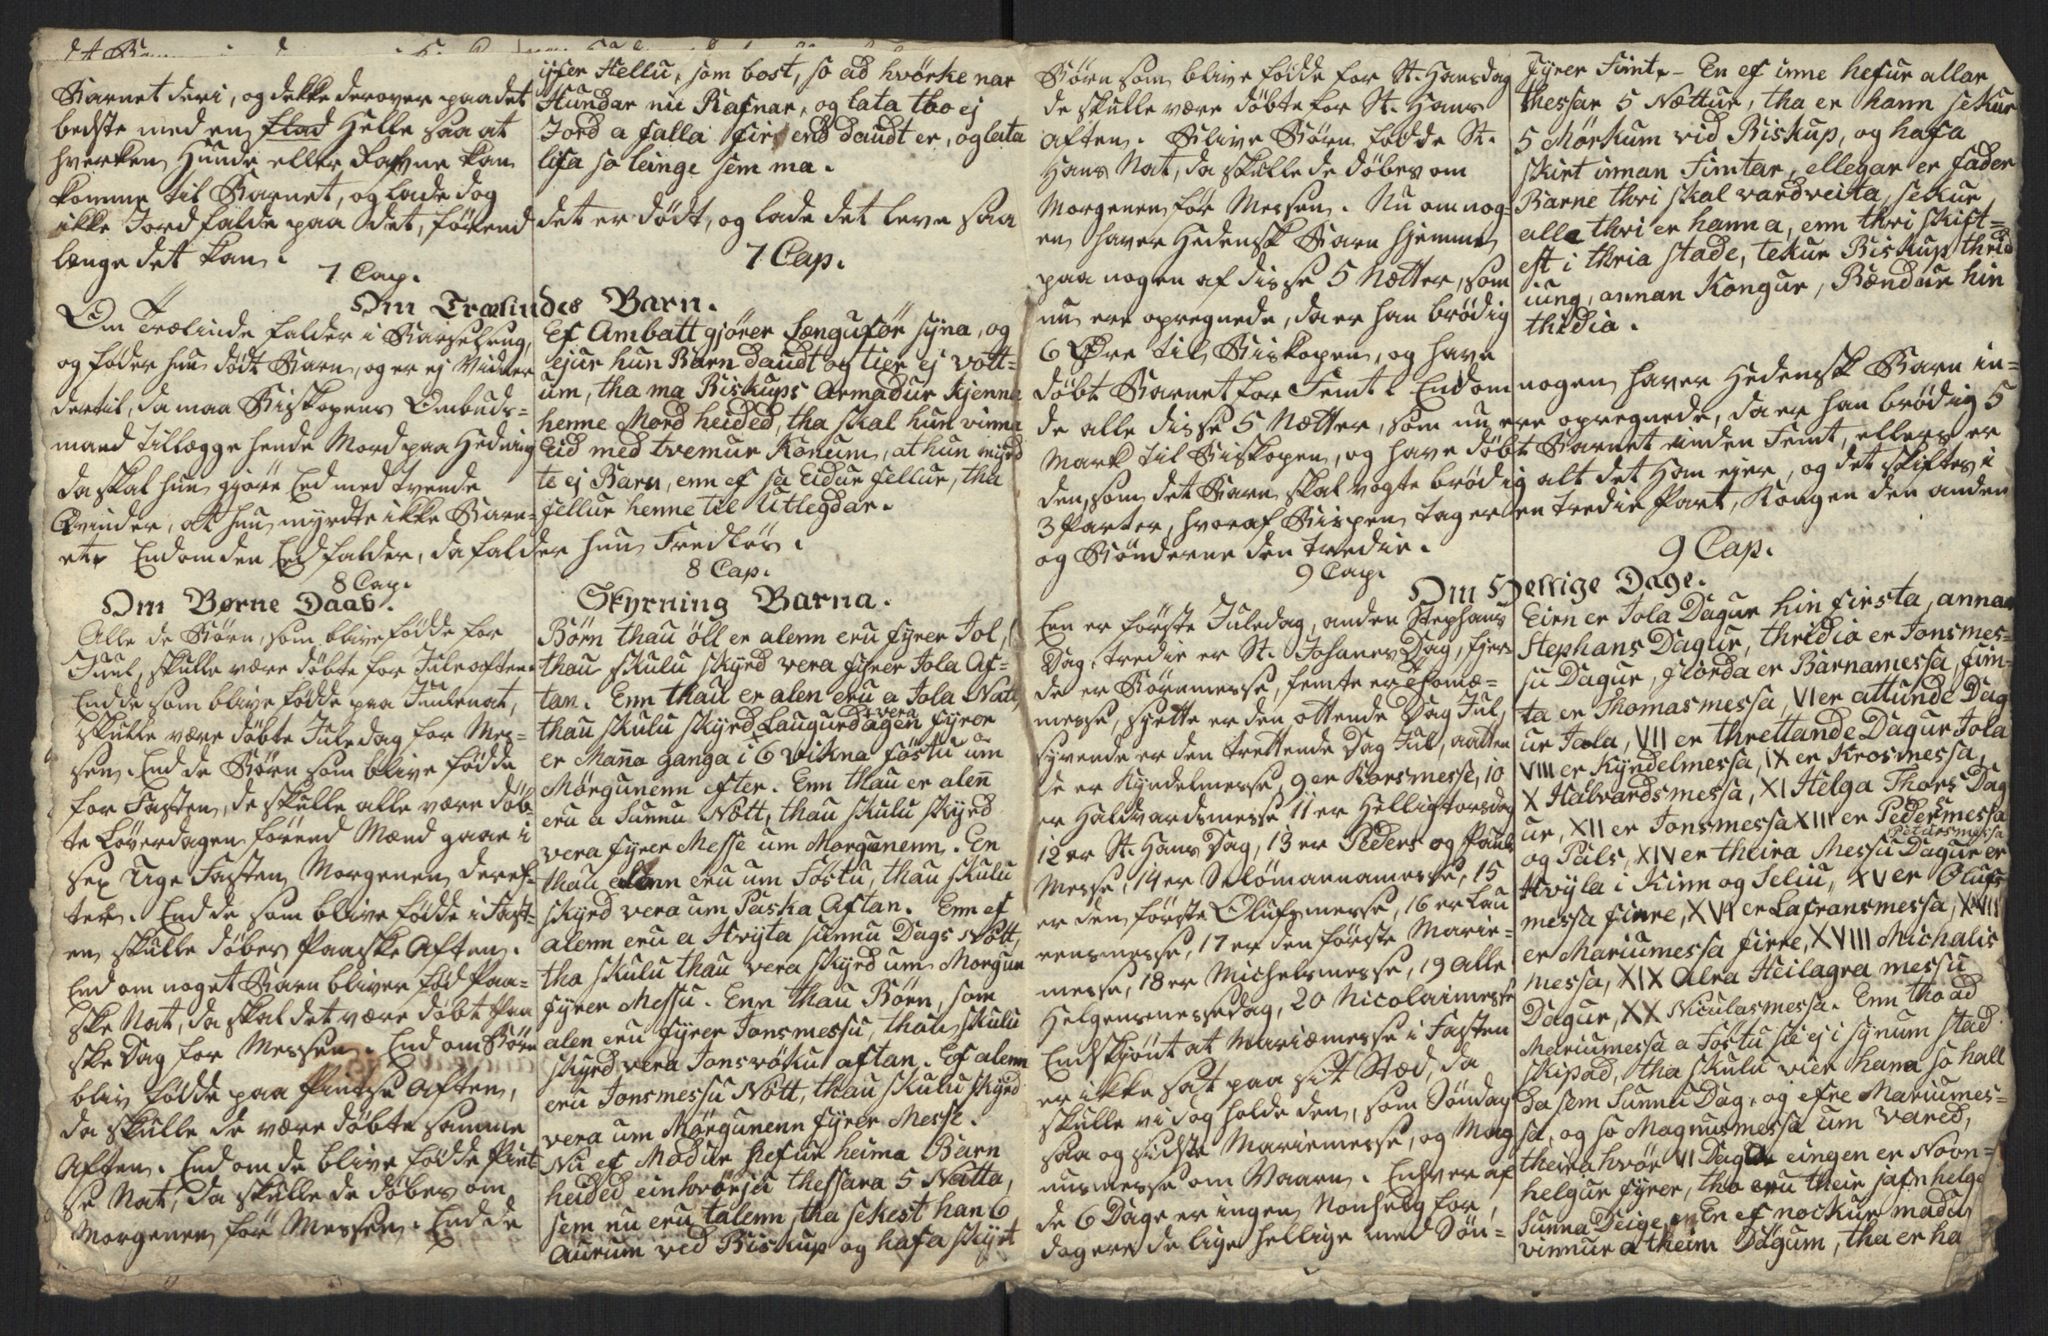 Barnet deri, og dekke derover paa det
bedste med en flad Helle saa at
hverken Hunde eller Rafne kan
komme til Barnet, og lade dog
ikke Jord falde paa det, førend
længe det kan.
7 Cap.
Om Trælindes Barn.
Om Trælinde falder i Barselseng,
og føder hun dødt Barn, og er ej Vidner
dertil, da maa Biskopens Ombuds-
mand tillægge hende Mord paa Hedning
da skal hun gjøre Eed med tvende
Qvinder, at hun myrdte ikke Barn-
et. End om den Eed falder, da falder hun Fredløs.
8 Cap.
Om Børne Daab.
Alle de Børn, som blive fødde for
Juul, skulle være døbte for Juleaften.
End de som blive fødde paa Julenat,
skulle være døbte Juledag for Mes-
sen. End de Børn som blive fødde
for Fasten, de skulle alle være døb
te Løverdagen førend Mænd gaae i
sex Uge Fasten Morgenen deref-
ter. End de som blive fødde i Fast-
en skulle døbes Paaske Aften.
End om noget Barn bliver fød Paa-
ske Nat, da skal det være døbt Paa
ske Dag for Messen. End om Børn
bliv fødde paa Pintse Aften,
da skulle de være døbte samme
Aften. End om de blive fødde Pint
se Nat, da skulle de døbes om
Morgenen for Messen. End de
yfer Hellu, som bost, so ad hvörke nar
Hundar nu Rafnar, og lata tho ej
Jord a falla fir end daudt er, og lata
lifa so leinge sem ma.
det er dødt, og lade det leve saa
7 Cap.
Ef Ambatt gjörer Sængufør syna, og
ejur hun Barn daudt og tier ej vott-
um, tha ma Biskups Armadur kjenne
henne Mord heided, tha skal hun vinna
Eid med tvemur Konum, at hun myrd
te ej Barn, enn ef sa Eidur fellur, tha
fellur henne til Utlegdar.
8 Cap.
Skyrning Barna.
Börn thau öll er alenn eru fyrer Jol,
thau skulu skyrd vera fyrer Jola Af-
tan. Enn thau er alen eru a Jola Natt
thau skulu skyrd vera Laugurdagen fyrer
er Mana ganga i 6 Vikna föstu um
Mörgunenn efter. Enn thau er alen
eru a Sunnu Nött, thau skulu skyrd
vera fyrer Messe um Morgunenn. En
thau alenn eru um Föstu, thau skulu
skyrd vera um Paska Aftan. Enn ef
alenn eru a Hvyta sunnu Dags Nött,
tha skulu thau vera skyrd um Morgun
fyrer Messu. Enn thau Börn, som
alen eru fyrer Jonsmessu, thau skulu
skyrd vera Jonsvöku aftan. Ef alenn
eru Jonsmessu Nött, thau skulu skyrd
vera um Mörgunenn fyrer Messe.
Nu ef Madur hefur heima Barn
heided einhvörju thessara 5 Natta,
sem nu eru talenn, tha sekest han 6
Aurum ved Biskup og hafa skyrt
Børn som blive fødde for St. Hansdag
de skulle være døbte for St. Hans
Aften. Blive Børn fødde St.
Hans Nat, da skulle de døbes om
Morgenen for Messen. Nu om nog-
en haver Hedensk Barn hjemme
paa nogen af disse 5 Nætter, som
nu ere opregnede, da er han brødig
6 Øre til Biskopen, og have
døbt Barnet for Femt. End om nogen haver Hedensk Barn in-
de alle disse 5 Nætter, som nu ere opregnede, da er han brødig 5
Mark til Biskopen, og have døbt Barnet inden Femt, ellers er
den, som det Barn skal vogte brødig alt det han ejer, og det skiftes i
3 Parter, hvoraf Bispen tager en tredie Part, Kongen den anden
og Bønderne den tredie.
9 Cap.
Om Hellige Dage.
Een er første Juledag, anden Stephans
Dag, tredie er St. Johannes Dag, fjer-
de er Børnmesse, femte er Thomæ-
messe, sjette er den ottende Dag Jul,
syvende er den trettende Dag Jul, aatten
de er Kyndelmesse, 9 er Korsmesse, 10
er Haldvardsmesse 11 er Helligtorsdag
12 er St. Hans Dag, 13 er Peders og Pauls
Messe, 14 er Selømannamesse, 15
er den første Olufsmesse, 16 er Lau
rensmesse, 17 er den første Marie-
messe, 18 er Michelsmesse, 19 alle
Helgensmessedag, 20 Nicolaimesse
Endskjönt at Mariæmesse i Fasten
er ikke sat paa sit Stæd, da
skulle vi dog holde den, som Søndag
saa og sidste Mariemesse, og Mag
nusmesse om Vaaren. Enhver af
de 6 Dage er ingen Nonhelg for,
dog ere de lige hellige med Søn-
Fyrer Fimt. En ef inne hefur allar
thessar 5 Nættur, tha er hann sekur
5 Mørkum vid Biskup, og hafa
skirt innan Fimtar, ellegar er fader
Barne thvi skal vardveita, sekur
alle thvi er hann a, enn thvi skift-
est i thria stade, tekur Biskup thrid
iung, annan Kongur, Bændur hin
thridia.
9 Cap.
Eirn er Jola Dagur hin firsta, annar
Stephans Dagur, thridia er Jonsmes-
su Dagur, fiorda er Barnamessa, fim-
ta er Thomasmessa, VI er attunde Dag
ur Jola, VII er threttande Dagur Jola
VIII er Kyndelmessa, IX er Krosmessa,
X Halvardsmessa, XI Helga Thors Dag
ur, XII er Jonsmessa XIII er Pedermessa
Petursmessa
og Pals, XIV er theira Messu Dagur er
Hvyla i Kinn og Seliu, XV er Olufs
messa firre, XVI er Lafransmessa, XVII
er Mariumessa firre, XVIII Michalis
messa, XIX Alra Heilagra messu
Dagur, XX Niculasmessa. Enn tho ad
Mariumessa a Föstu sie ej i synum stad
skipad, tha skulu vier hana so hall
da sem Sunnu Dag, og efre Mariumes-
sa, og so Magnusmessa um Vared,
theira hvör VI Dagar eingen er Noon-
helgur fyrer, tho eru their jafnhelge
Sunna Deige. En ef nockur madur
vinnur a theim Dögum, tha er ha